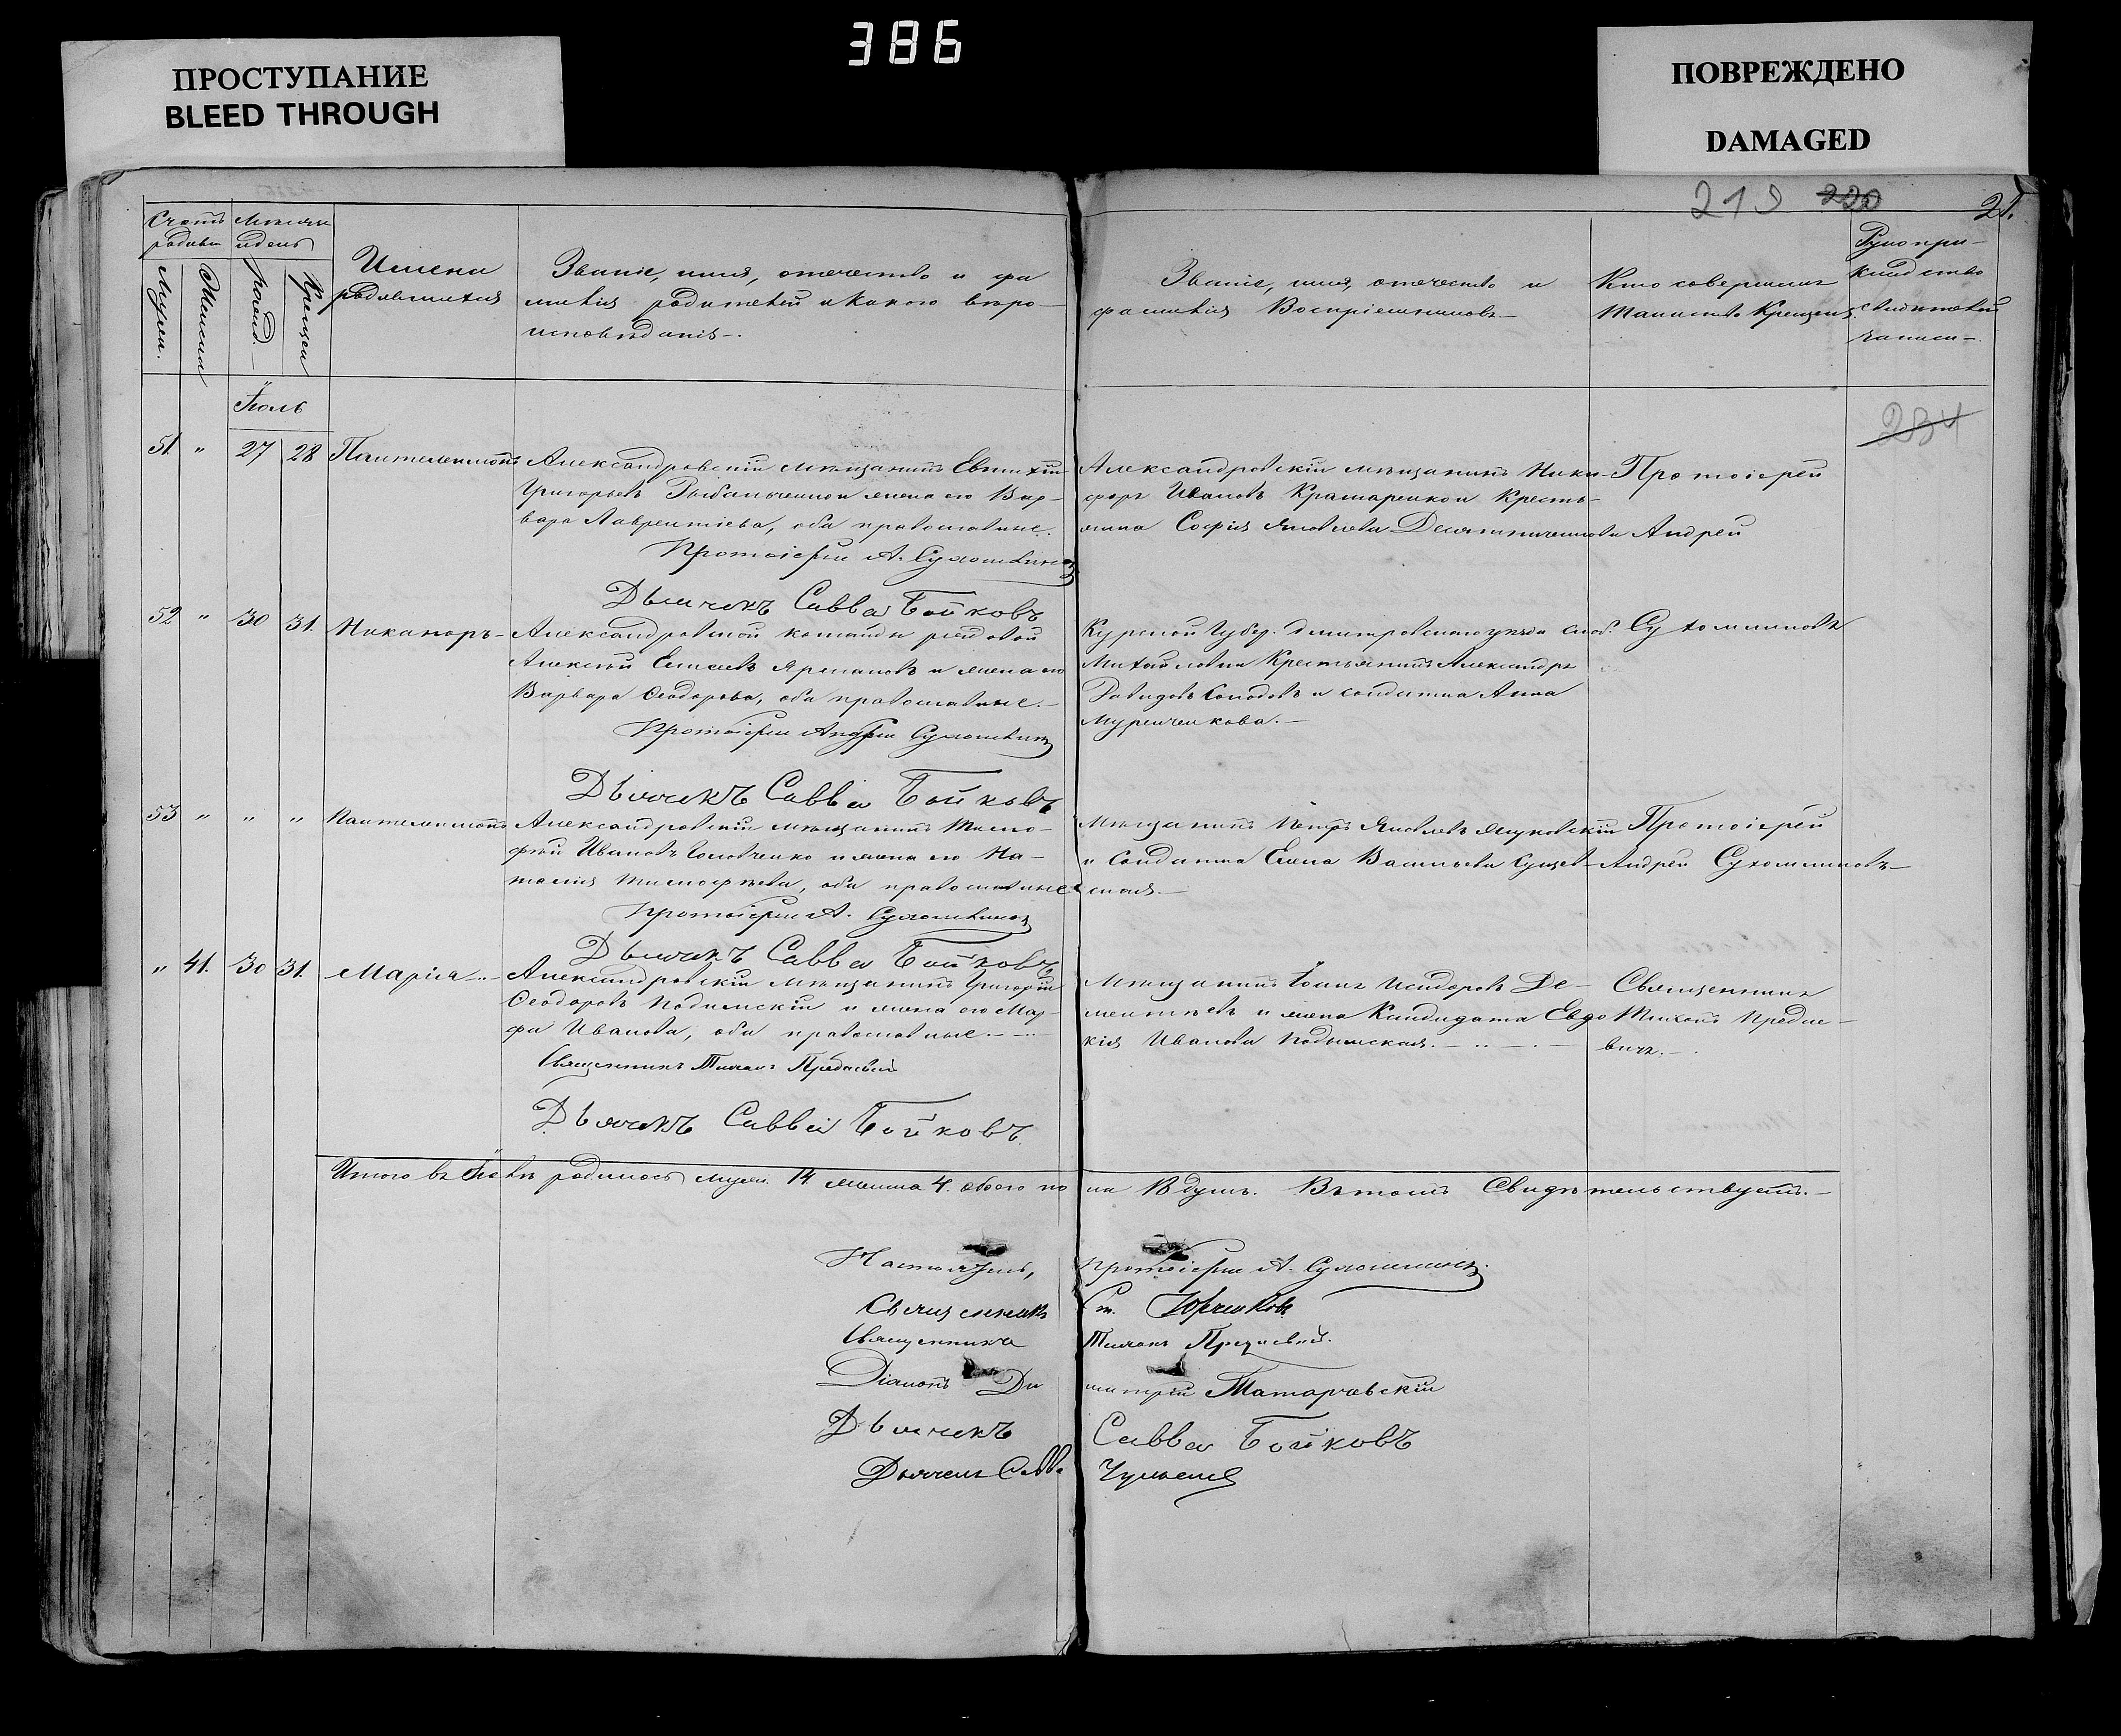 386
ПРОСТУПАНИЕ
BLEED THROUGH
ПОВРЕЖДЕНО
DAMAGED
219 220
234
Счетъ
родивш
Мужеск.
Женска
Мѣсяцъ
и день
рожд.
Крещен
Имена
родившихся
Званіе, имя, отечество и фа
милія родителей и какого вѣро-
исповѣданія.
Званіе, имя, отечество и
фамилія Воспріемниковъ
Кто совершилъ
Таинство Крещенія.
Рукопри-
кладство
свидѣтелей
записи
Іюль
51. " 27 28 Пантелеимонъ
Александровскій мѣщанинъ Евтихій
Григорьевъ и жена его Вар-
вара Лаврентіева, оба православные.
Протоіерей А. Сухомлиновъ
Дьячекъ Савва Бойковъ
Александровскій мѣщанинъ Ники-
форъ Ивановъ Крамаренко и Кресть-
янка Софія Яковлева
Протоіерей
Андрей
52 " 30 31. Никаноръ
Александровской команды рядовой
Алексѣй Елисеевъ и жена его
Варвара Ѳеодорова, оба православные.
Протоіерей Андрей Сухомлиновъ
Дьячекъ Савва Бойковъ
Курской Губер. Дмитровскаго уѣзда слоб.
Михайловки Крестьянинъ Александръ
Давидовъ и солдатка Анна
Сухомлиновъ
53 " " " Пантелеимонъ
Александровскій мѣщанинъ Тимо-
фѣй Ивановъ Головченко и жена его На-
талія Тимофѣева, оба православные
Протоіерей А. Сухомлиновъ
Дьячекъ Савва Бойковъ
Мѣщанинъ Петръ Яковлевъ
и Солдатка Елена Васильева
Протоіерей
Андрей Сухомлиновъ
" 41. 30 31. Марія
Александровскій мѣщанинъ Григорій
Ѳеодоровъ Подымскій и жена его Мар-
фа Иванова, оба православные.
Священникъ Тихонъ
Дьячекъ Савва Бойковъ
Мѣщанинъ Іоаннъ Исидоровъ Де-
ментьевъ и жена Кандидата Евдо
кія Иванова Подымская.
Священникъ
Тихонъ
Итого въ Іюлѣ родилось муж. 14 женска 4. обоего по
ла 18 душъ. Въ томъ Свидѣтельствуемъ.
Настоятель, протоіерей А. Сухомлиновъ.
Священникъ Юрченков
Священникъ Тихонъ
Діаконъ Ди митрій Татарчевскій
Дьячекъ Савва Бойковъ
Дьячекъ Савва